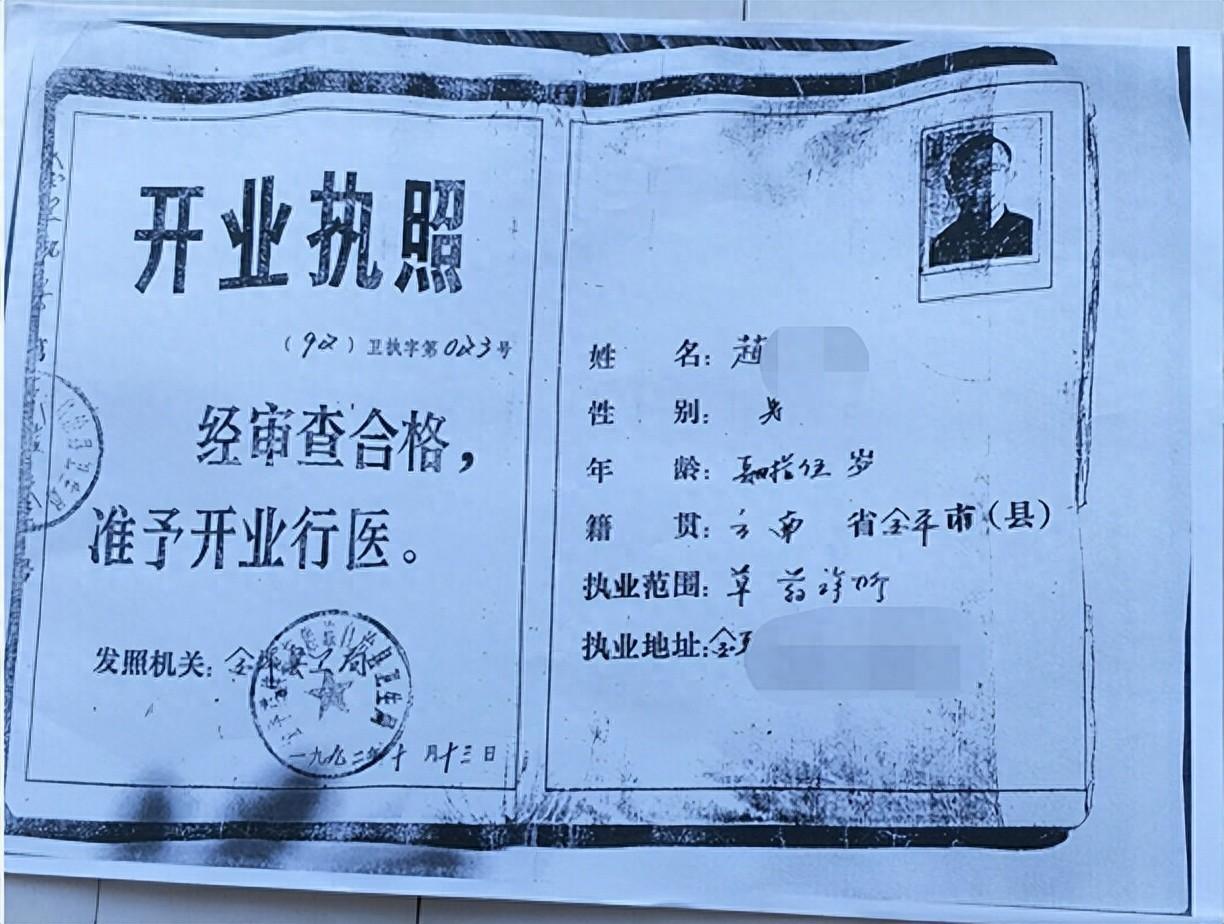 开业执照
（92）卫执字第023号
经审查合格，
准予开业行医。
发照机关：金平县卫局
一九九二年十月十三日
姓 名：趙
性 别：男
年 龄：肆拾伍岁
籍 贯：云南 省金平市（县）
执业范围：草药诊所
执业地址：金平